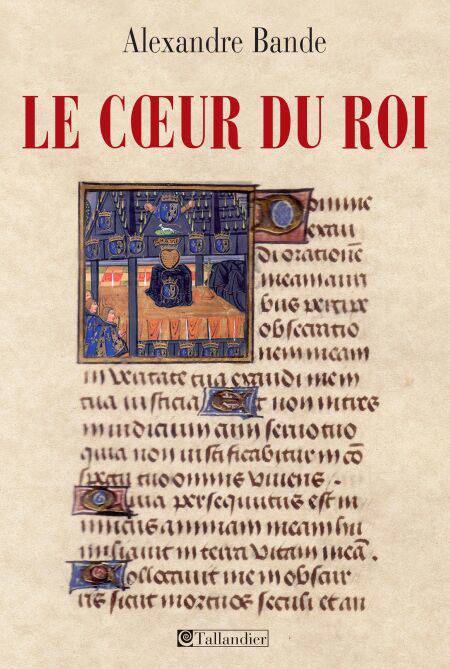 Alexandre Bande
LE CŒUR DU ROI
Domine
exau
di orationē
meam auri
bus percipe
obsecratio
nem meam
in veritate tua exaudi me in
tua iusticia Et non intres
in iudicium cum servo tuo
quia non iustificabitur in cō
spectu tuo omnis vivens .
Quia persequutus est in
imicus animam meam hu
miliavit in terra vitam meā .
Collocavit me in obscur
is sicut mortuos seculi et an
Tallandier